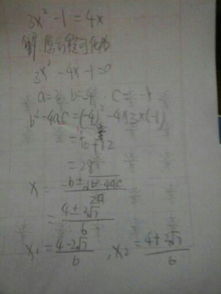 3x²-1=4x
解 原方程可化为
3x²-4x-1=0
a=3 b=-4 c=-1
b²-4ac=(-4)²-4×3×(-1)
=16+12
=28
x=\frac{-b±\sqrt{b²-4ac}}{2a}
=\frac{4±2√7}{6}
x₁=\frac{4-2√7}{6},x₂=\frac{4+2√7}{6}